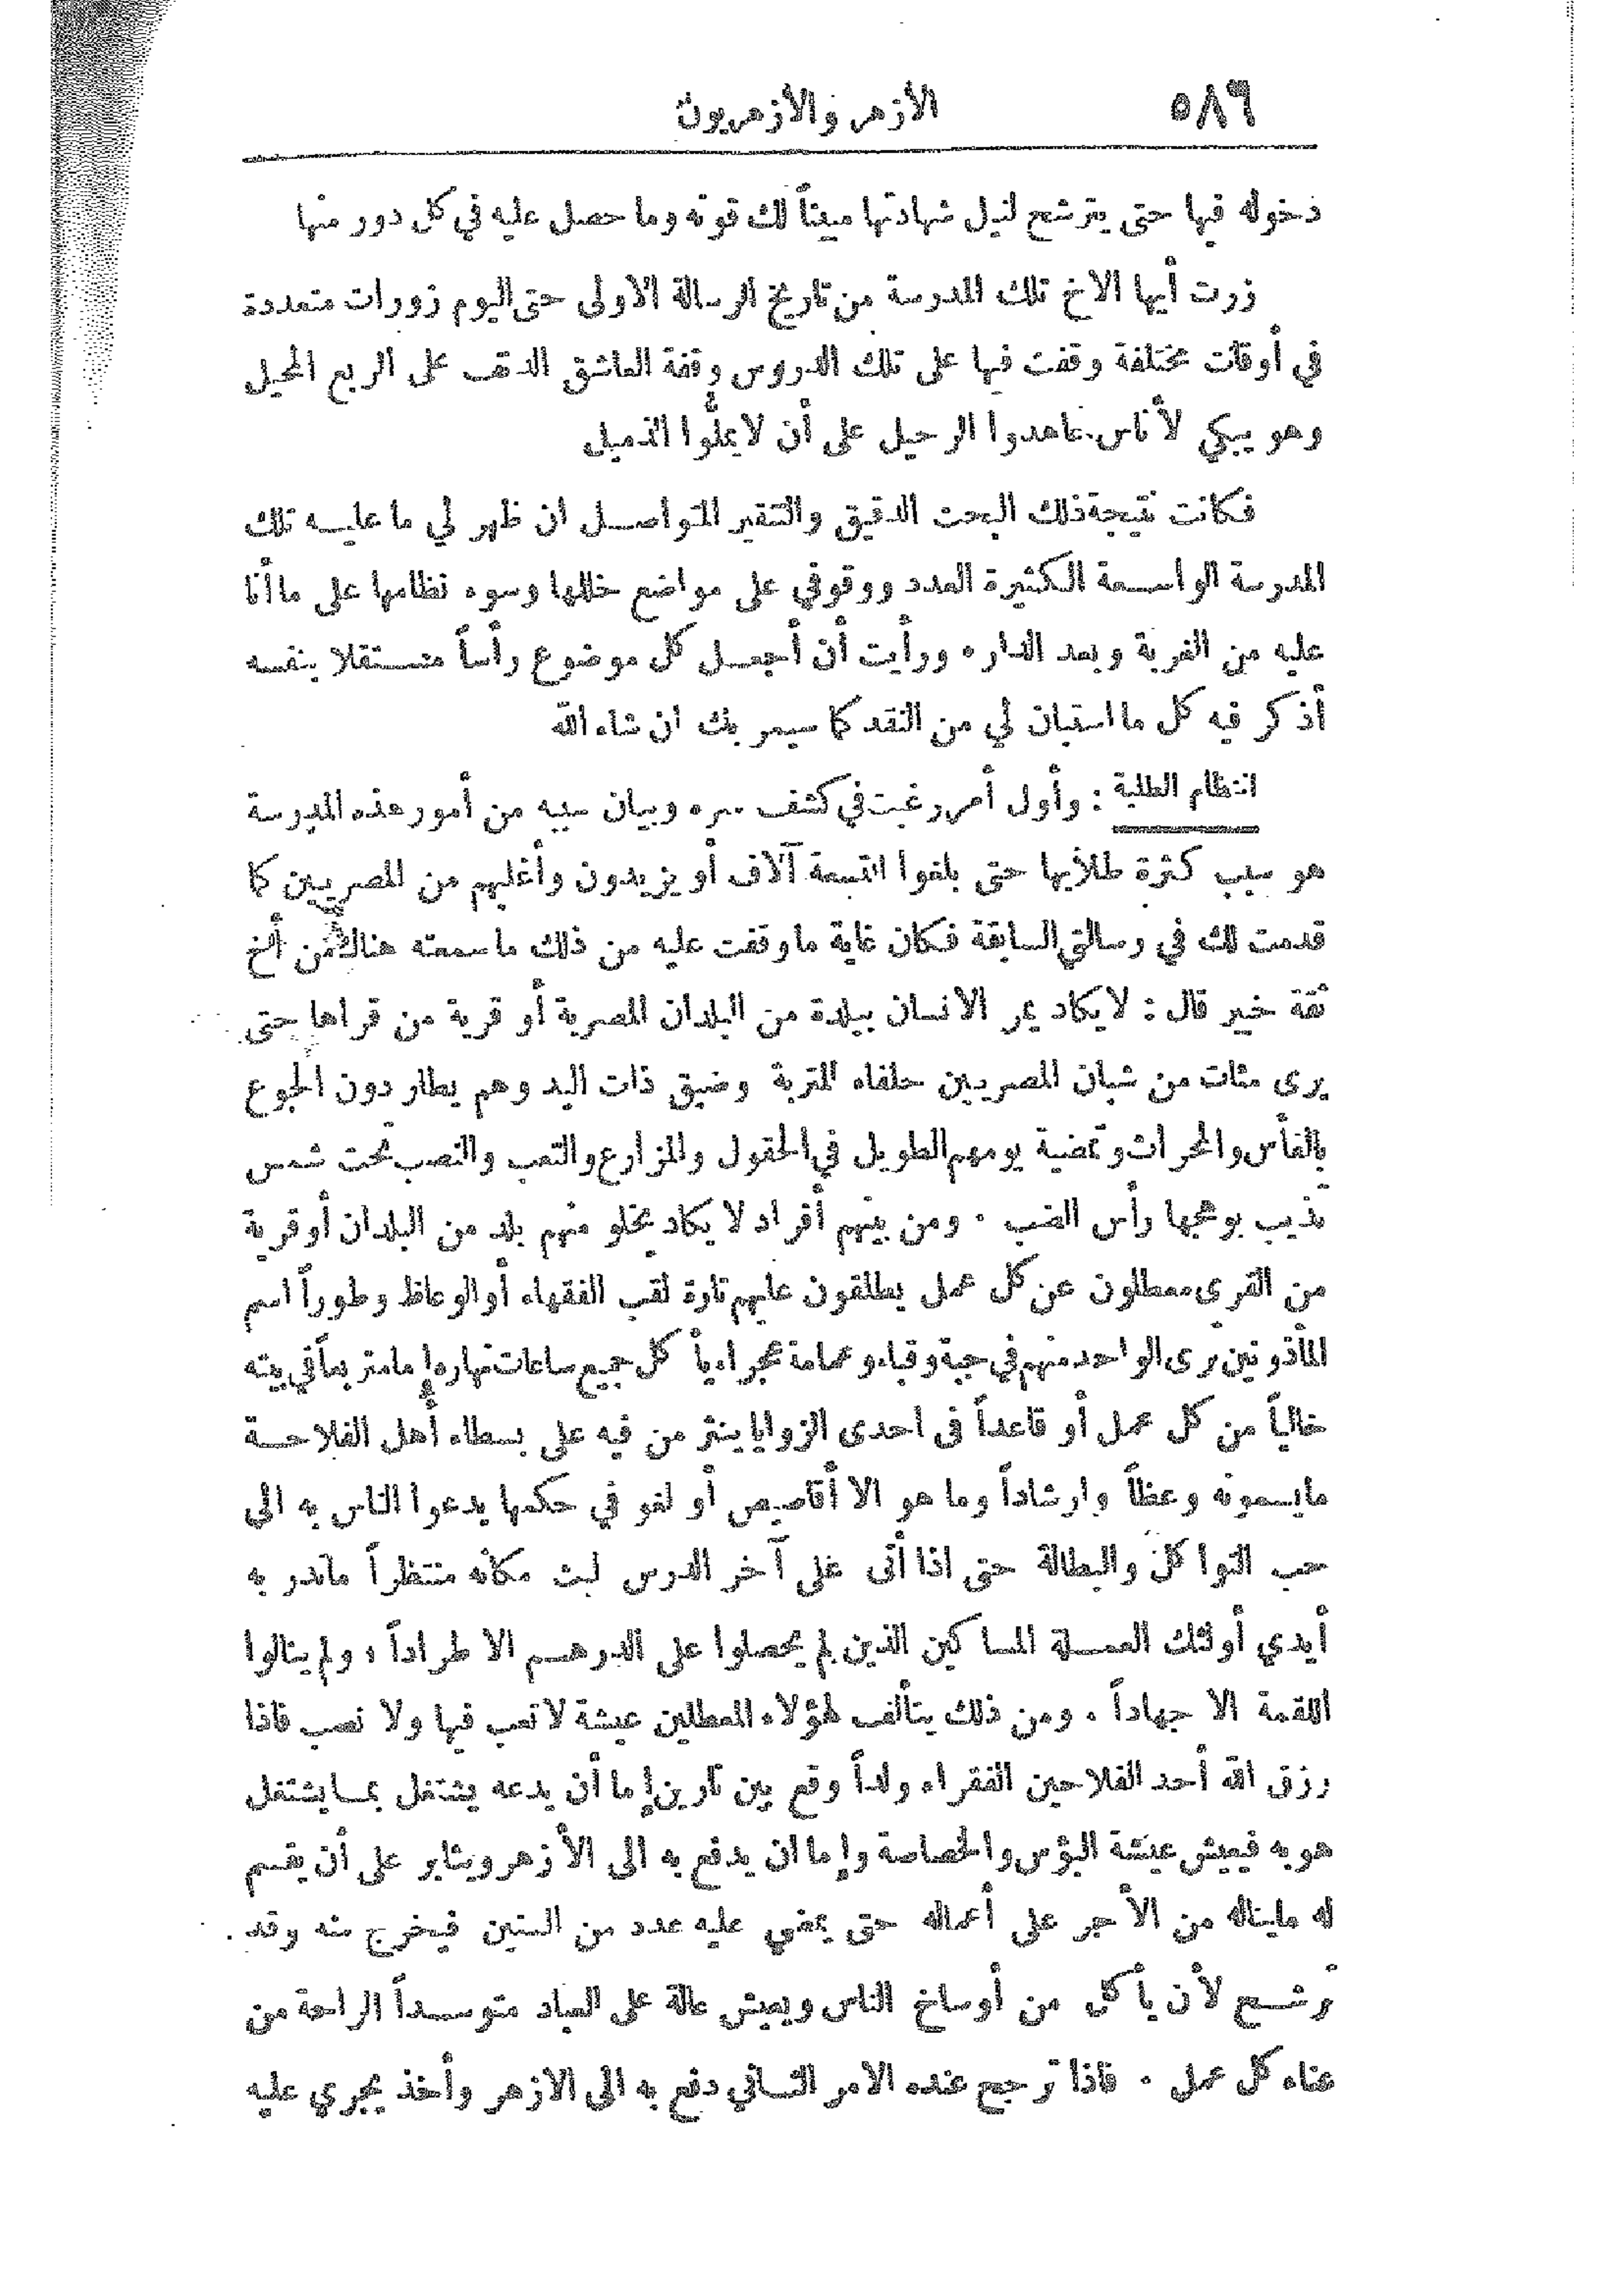 ٥٨٩ الأزهر والأزهريون
دخوله فيها حتى يترشح لنيل شهادتها مبيناً لك قوته وما حصل عليه في كل دور منها
زرت أيها الاخ تلك المدرسة من تاريخ الرسالة الاولى حتى اليوم زورات متعددة
في أوقات مختلفة وقفت فيها على تلك الدروس وقفة العاشق الدنف على الربع المحيل
وهو يبكي لأناس عاهدوا الرحيل على أن لا يملّوا الذميل
فكانت نتيجة ذلك البحث الدقيق والتنقير المتواصل ان ظهر لي ما عليه تلك
المدرسة الواسعة الكثيرة العدد ووقوفي على مواضع خللها وسوء نظامها على ما أنا
عليه من الغربة وبعد الدار . ورأيت أن أجعل كل موضوع رأساً مستقلا بنفسه
أذكر فيه كل ما استبان لي من النقد كما سيمر بك ان شاء الله
انتظام الطلبة : وأول أمر رغبت في كشف سره وبيان سببه من أمور هذه المدرسة
هو سبب كثرة طلابها حتى بلغوا التسعة آلاف أو يزيدون وأغلبهم من المصريين كما
قدمت لك في رسالتي السابقة فكان غاية ما وقفت عليه من ذلك ما سمعته هناك من أخ
ثقة خبير قال : لا يكاد يمر الانسان ببلدة من البلدان المصرية أو قرية من قراها حتى
يرى مئات من شبان المصريين حلفاء المتربة وضيق ذات اليد وهم يطارد دون الجوع
بالفأس والمحراث وتمضية يومهم الطويل في الحقول والمزارع والتعب والنصب تحت شمس
يذيب بوهجها رأس الضب . ومن بينهم أفراد لا يكاد يخلو منهم بلد من البلدان أو قرية
من القرى معطلون عن كل عمل يطلقون عليهم تارة لقب الفقهاء أو الوعاظ وطوراً اسم
المأذونين يرى الواحد منهم في جبة وقباء وعمامة عجراء يأكل جميع ساعات نهاره إما متربعاً في بيته
خالياً من كل عمل أو قاعداً في احدى الزوايا ينثر من فيه على بسطاء أهل الفلاحة
ما يسمونه وعظاً وارشاداً وما هو الا أقاصيص أو لغو في حكمها يدعوا الناس به الى
حب التواكل والبطالة حتى اذا أتى على آخر الدرس لبث مكانه منتظراً ما تدر به
أيدي أولئك العملة المساكين الذين لم يحصلوا على الدرهم الا طراداً ، ولم ينالوا
اللقمة الا جهاداً . ومن ذلك يتألف لهؤلاء المعطلين عيشة لا تعب فيها ولا نصب فاذا
رزق الله أحد الفلاحين الفقراء ولداً وقع بين نارين إما أن يدعه يشتغل بما يشتغل
هو به فيعيش عيشة البؤس والخصاصة وإما ان يدفع به الى الأزهر ويثابر على أن يقسم
له ما يناله من الأجر على أعماله حتى يمضي عليه عدد من السنين فيخرج منه وقد
ترشح لأن يأكل من أوساخ الناس ويعيش عالة على العباد متوسداً الراحة من
عناء كل عمل . فاذا ترجح عنده الامر الثاني دفع به الى الازهر وأخذ يجري عليه